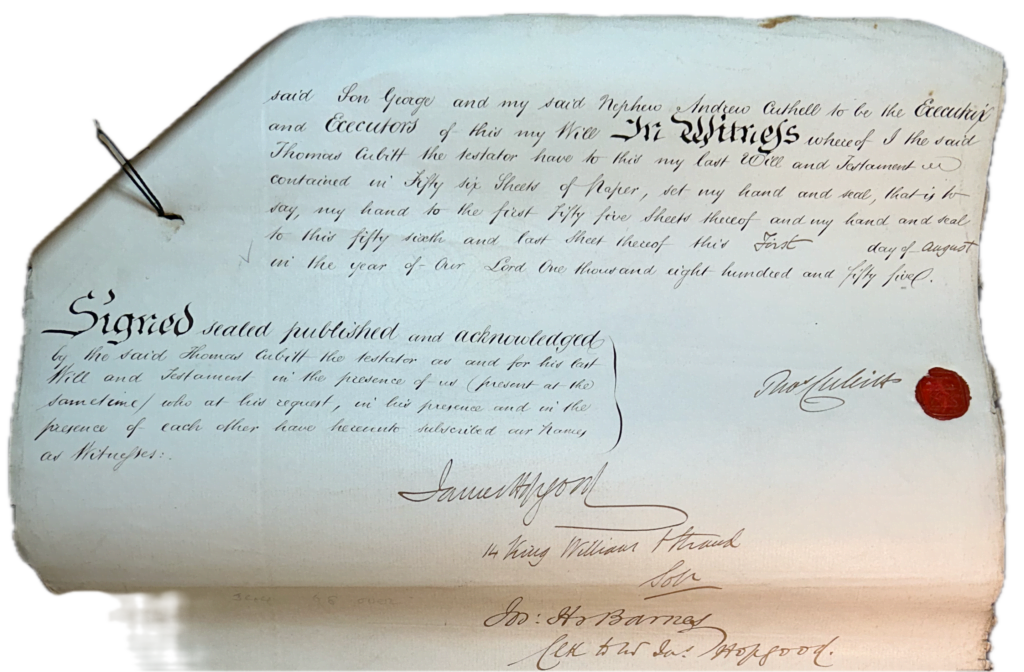 said Son George and my said Nephew Andrew Cuthell to be the Executrix
and Executors of this my Will In Witness whereof I the said
Thomas Cubitt the testator have to this my last Will and Testament
contained in Fifty six Sheets of Paper, set my hand and seal, that is to
say, my hand to the first fifty five Sheets thereof and my hand and seal
to this fifty sixth and last Sheet thereof this First day of August
in the year of Our Lord One thousand eight hundred and fifty five.
Signed sealed published and acknowledged
by the said Thomas Cubitt the testator as and for his last
Will and Testament in the presence of us (present at the
same time) who at his request, in his presence and in the
presence of each other have hereunto subscribed our Names
as Witnesses:.
Thos Cubitt
James Hopgood
14 King William Strand
Solr
Jos: Hy Barnes
Clk to Mr Jas Hopgood.